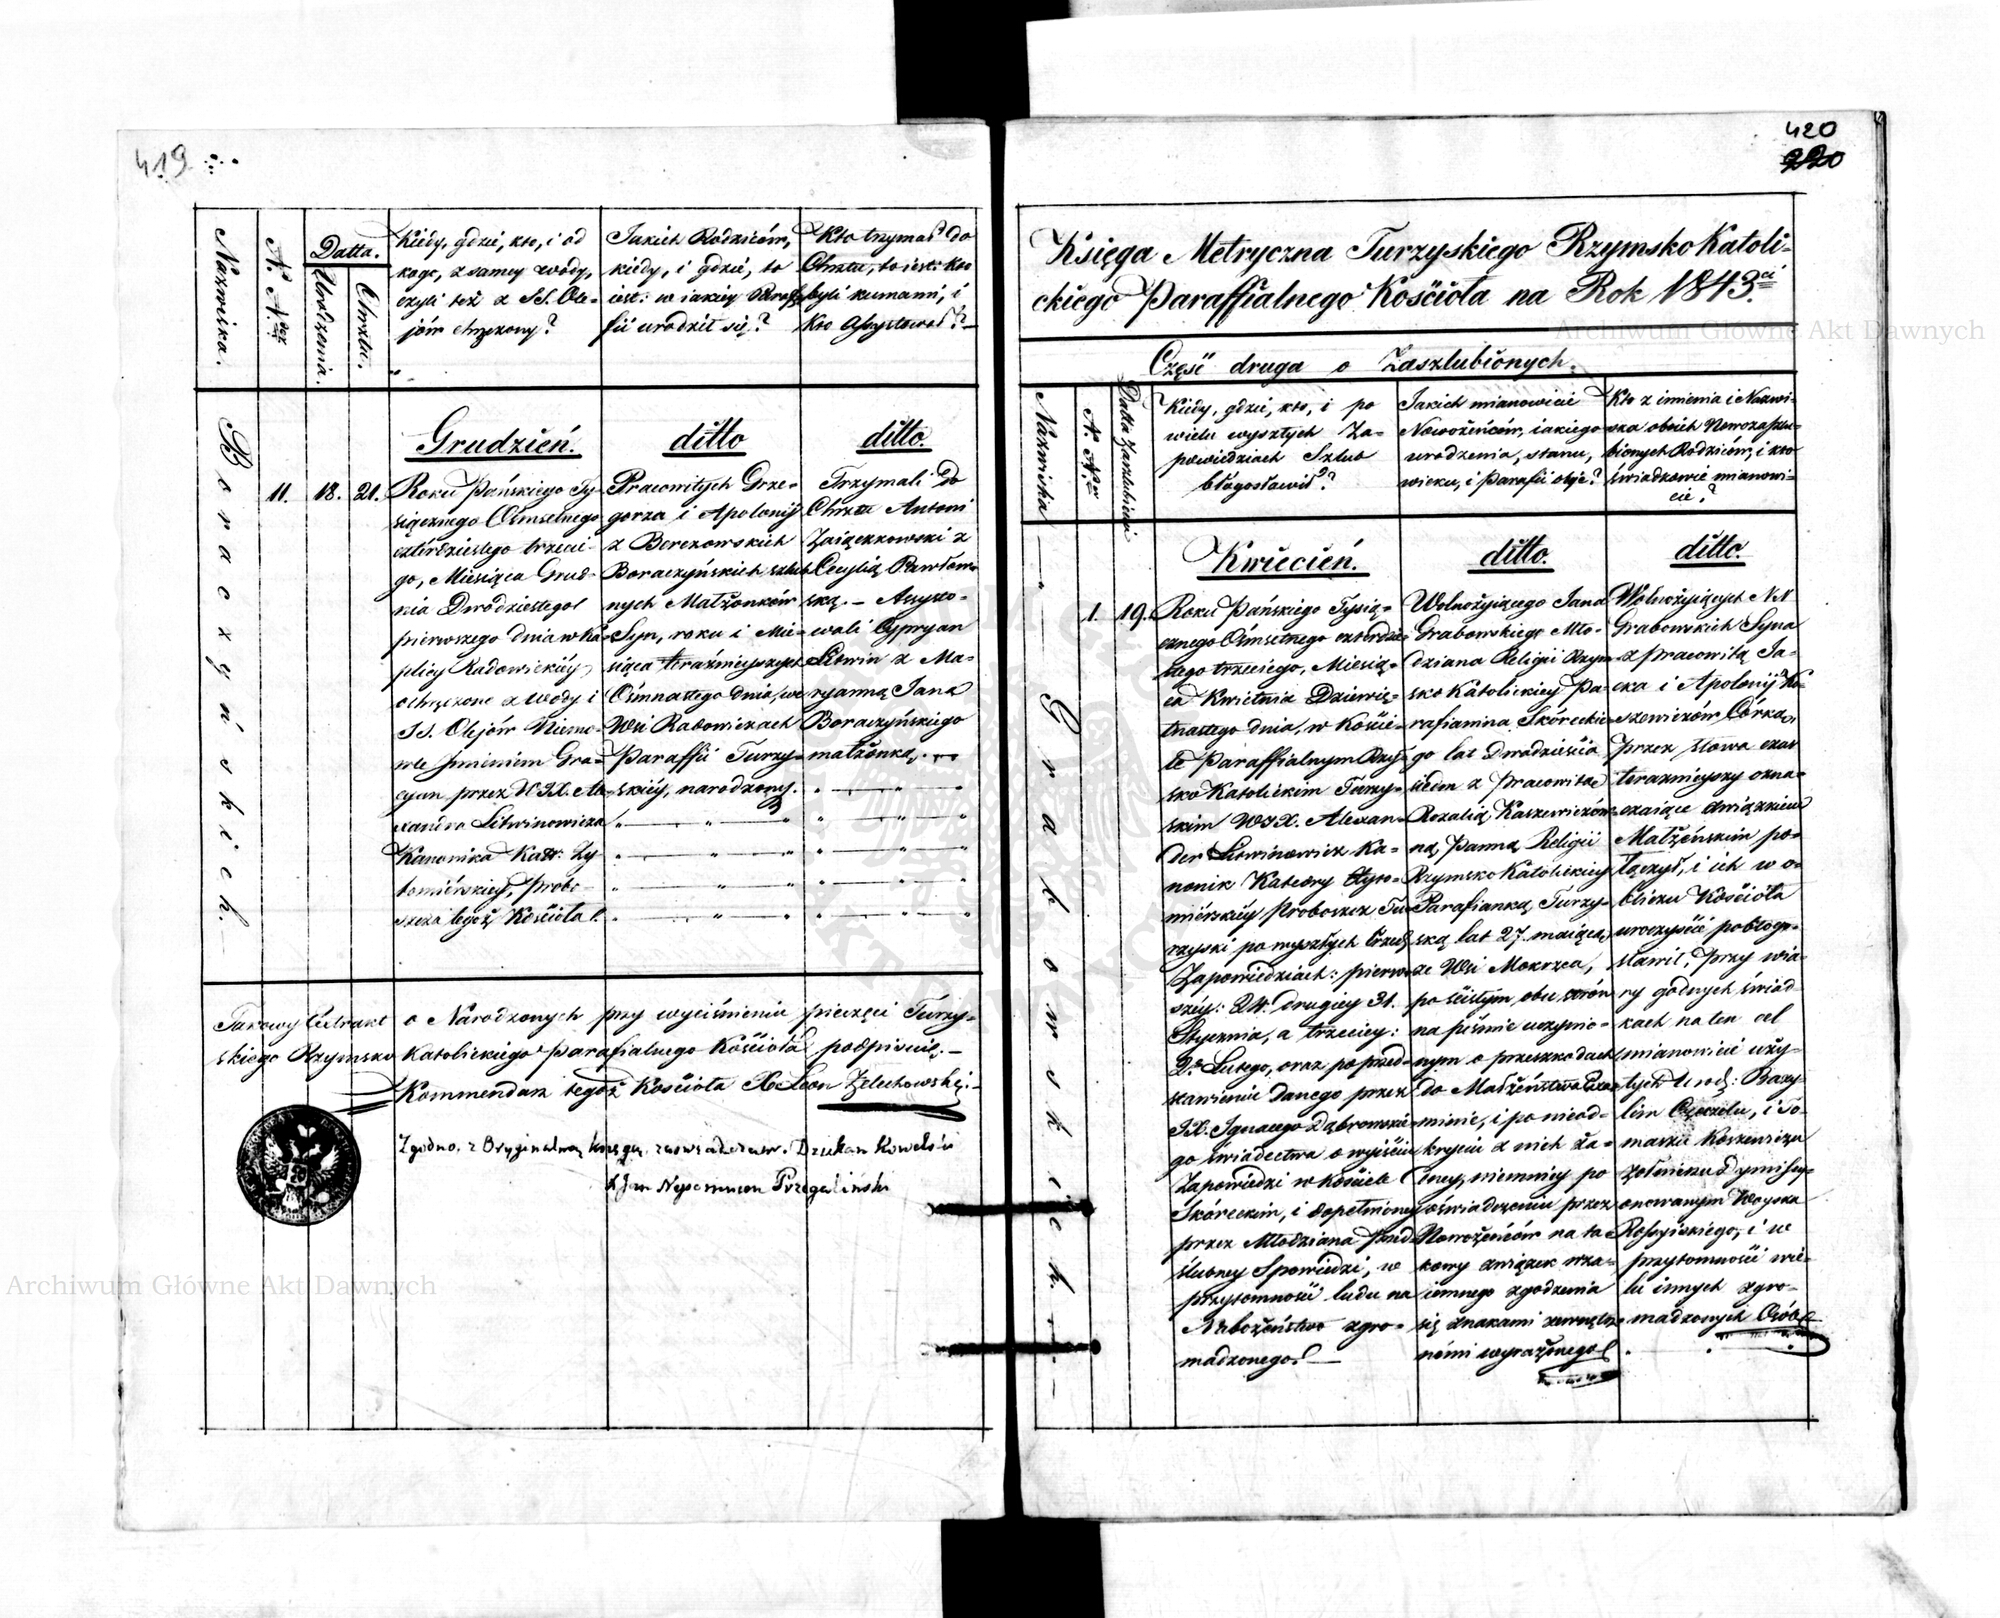 419
Nazwiska.
N. N.
Datta.
Urodzenia.
Chrztu.
Kiedy, gdzie, kto, i od
kogo, z samey wody,
czyli też z SS. Ole-
jów chrzczony?
Jakich Rodziców,
kiedy, i gdzie, to
iest: w iakiey Paraf-
fii urodził się?
Kto trzymał do
Chrztu, to iest: kto
byli kumami, i
kto Assystował?
Boraczyńskich.
11.
18.
21.
Grudzień.
Roku Pańskiego Ty-
siącznego Ośmsetnego
czterdziestego trzeci-
go, Miesiąca Grud-
nia Dwódziestego
pierwszego dnia w Ka-
plicy Radowickiéy
ochrzczono z Wody i
SS. Olejów Niemo-
wle Jmieniem Gra-
cyan przez WJX. Ale-
xandra Litwinowicza
Kanonika Kated: Zy-
tomiérskiéy, Probo-
szcza tegoż Kościoła.
ditto
Pracowitych Grze-
gorza i Apolonij
z Berezowskich
Boraczyńskich szlub-
nych Małżonków
Syn, roku i Mie-
siąca teraźnieyszych
Ośmnastego dnia, we
Wsi Radowiczach
Paraffii Turzy-
skiéy, narodzony.
ditto.
Trzymali do
Chrztu Antoni
Zaiączkowski z
Cecylią Pawłow-
ską. – Assysto-
wali Cypryan
Litwin z Ma-
ryanną Jana
Boraczyńskiego
małżonką.
Takowy Extrakt o Narodzonych przy wyciśnieniu pieczęci Turzy-
skiego Rzymsko Katolickiego Parafialnego Kościoła podpisuię. –
Kommendarz tegoż Kościoła X Leon Zelechowski. –
Zgodno, z Oryginalną księgą zaswiadczam. Dziekan Kowelski
X Jan Nepomucen Przegaliński
420
220
Księga Metryczna Turzyskiego Rzymsko Katoli-
ckiego Paraffialnego Kościoła na Rok 1843.
Część druga o Zaszlubionych.
Nazwiska
N. N.
Datta Zaszlubień
Kiedy, gdzie, kto, i po
wielu wyszłych Za-
powiedziach Szlub
błogosławił?
Jakich mianowicie
Nowożeńców, iakiego
urodzenia, stanu,
wieku, i Parafii obje?
Kto z imienia i Nazwi-
ska obóich Nowozaszlu-
bionych Rodziców, i kto
świadkowie mianowi-
cie?
Grabowskich.
1.
19.
Kwiecień.
Roku Pańskiego Tysią-
cznego Ośmsetnego czterdzie-
stego trzeciego, Miesią-
ca Kwietnia Dziewię-
tnastego dnia, w Koście-
le Paraffialnym Rzym-
sko Katolickim Turzy-
skim WJX. Alexan-
der Litwinowicz Ka-
nonik Katedry Zyto-
miérskiéy Proboszcz Tu-
rzyski po wyszłych trzech
Zapowiedziach: pierw-
széy: 24. drugiey 31.
Stycznia, a trzeciey:
2. Lutego, oraz po przed-
stawieniu danego przez
JX. Ignacego Dąbrowskie-
go świadectwa o wyjściu
Zapowiedzi w Kościele
Skóreckim, i dopełnioney
przez Młodziana Przed-
ślubney Spowiedzi, w
przytomności ludu na
Nabożeństwo zgro-
madzonego.
ditto.
Wolnożyiącego Jana
Grabowskiego Mło-
dziana Religii Rzym-
sko Katolickiey Pa-
rafianina Skóreckie-
go lat Dwadzieścia
siedm z Pracowitą
Rozalią Kaszewiczów-
ną, Panną Religii
Rzymsko Katolickiey
Parafianką Turzy-
ską lat 27 maiącą,
ze Wsi Mokrzca,
po ścisłym obu stron
na piśmie uczynio-
nym o przeszkodach
do Małżeństwa Exa-
minie, i po nieod-
kryciu z nich ża-
dney, niemniey po
oświadczeniu przez
Nowożeńców na ta-
kowy związek wza-
iemnego zgodzenia
się znakami zewnętrz-
némi wyrażonego
ditto.
Wolnożyiących NN
Grabowskich Syna
z pracowitą Ja-
cka i Apolonij Ko-
szewiczów Córką,
przez słowa czas
teraznieyszy ozna-
czaiące związkiem
Małżeńskim po-
łączył, i ich w o-
bliczu Kościoła
uroczyście pobłogo-
sławił, przy wia-
ry godnych świad-
kach na ten cel
mianowicie uży-
tych Urodz: Bazy-
lim Czeczelu, i To-
maszu Koszewiczu
Żołnierzu Dymissy-
onowanym Woyska
Rossyiskiego, i w
przytomności wie-
lu innych zgro-
madzonych Osób.
Archiwum Główne Akt Dawnych
Archiwum Główne Akt Dawnych